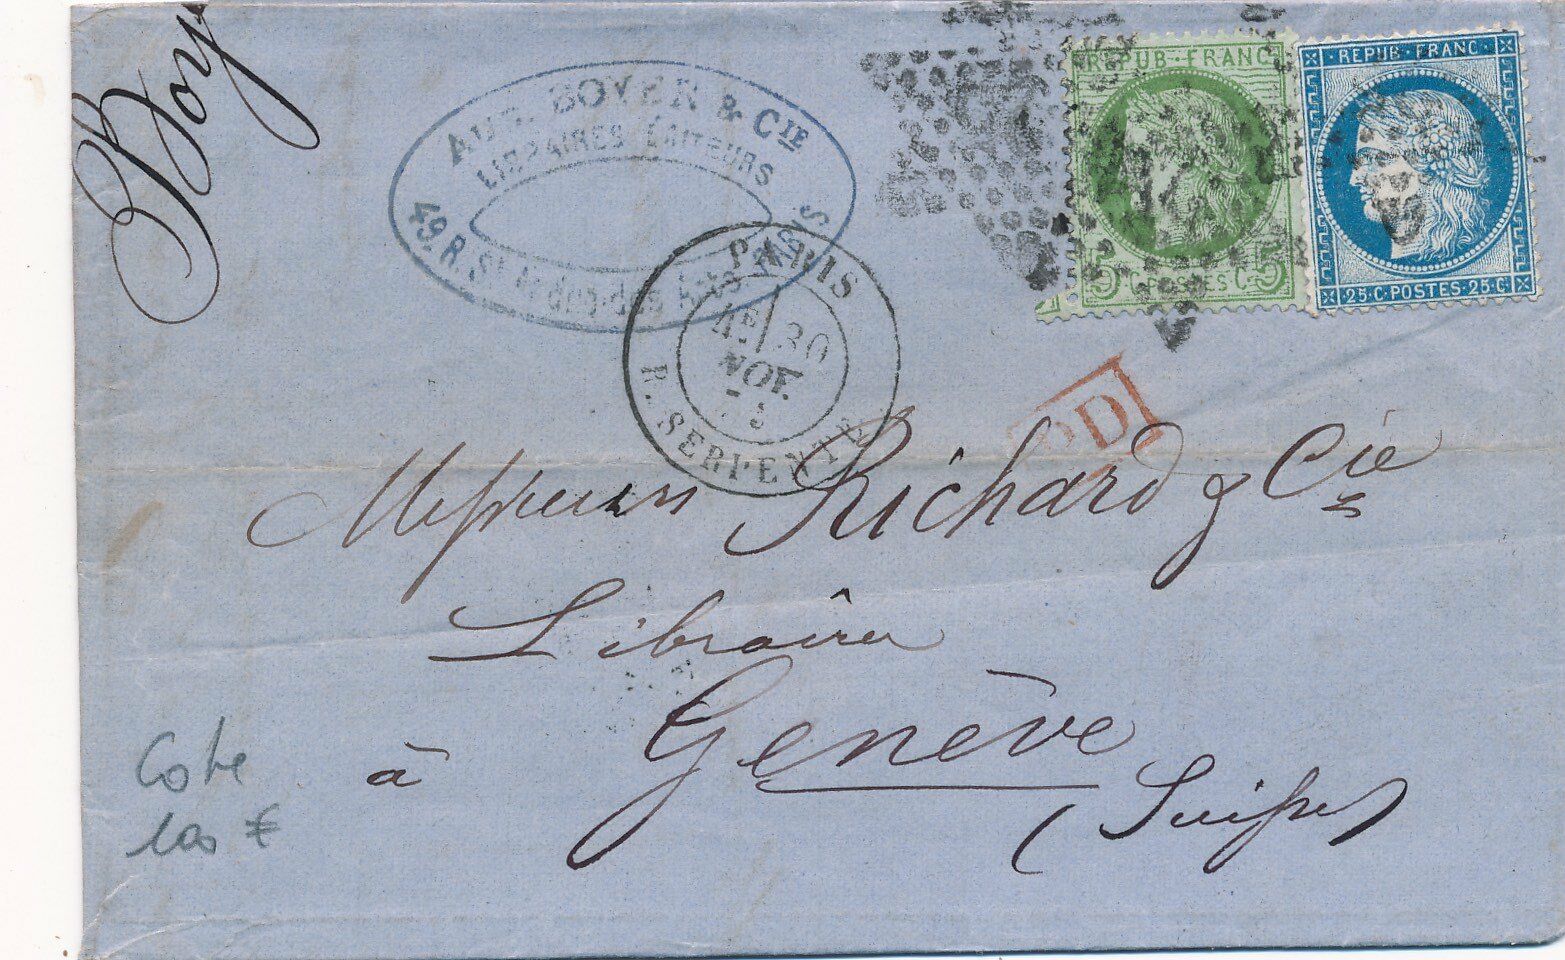 Boy
AUG. BOYER & CIE
LIBRAIRES ÉDITEURS
49. R. St André-des-Arts PARIS
PARIS
4E 30
NOV.
R. SERPENTE
REPUB·FRANC
5 C·POSTES·C. 5
REPUB·FRANC·
25·C·POSTES·25·C
PD
Messieurs Richard & Cie
Libraires
à Genève
(Suisse)
Cote
100 €